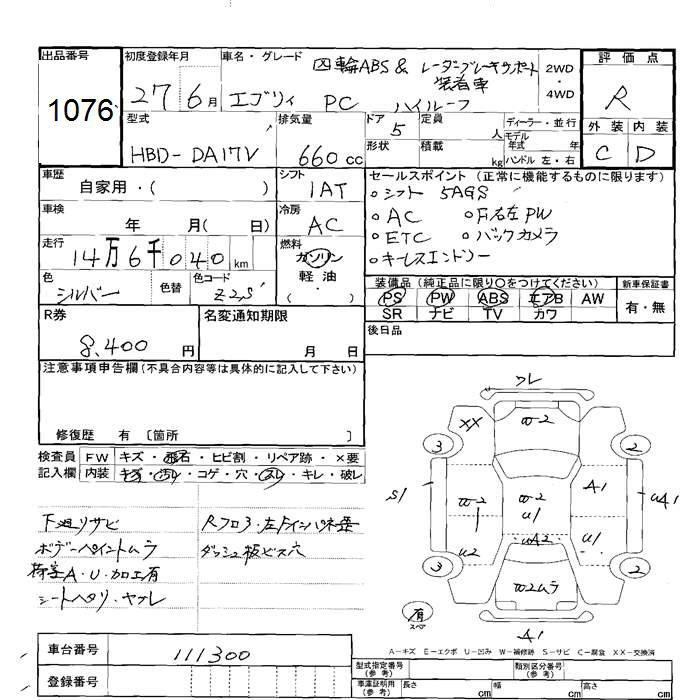 出品番号
1076
初度登録年月
27 6月
車名・グレード
四輪ABS & レーダーブレーキサポート
装着車
エブリィ PC ハイルーフ
2WD
・
4WD
評価点
R
外装 内装
C D
型式
HBD-DA17V
排気量
660 cc
ドア
5
定員
人
形状
積載
kg
ディーラー・並行
モデル
年式 年
ハンドル 左・右
車歴
自家用・( )
シフト
1AT
車検
年 月( 日)
冷房
AC
走行
14万6千040km
燃料
ガソリン
軽油
( ・ )
色
シルバー
色替
色コード
Z2S
セールスポイント (正常に機能するものに限ります)
○シフト 5AGS
○AC ○F右左PW
○ETC ○バックカメラ
○キーレスエントリー
装備品 (純正品に限り○をつけてください)
PS PW ABS エアB AW
SR ナビ TV カワ
新車保証書
有・無
後日品
R券
8,400円
名変通知期限
月 日
注意事項申告欄 (不具合内容等は具体的に記入して下さい)
修復歴 有 〔箇所 〕
検査員
記入欄
FW キズ・飛石・ヒビ割・リペア跡・×要
内装 キズ・汚れ・コゲ・穴・スレ・キレ・破レ
下廻リサビ
ボデーペイントムラ
荷室A・U・加工有
シートヘタリ・ヤブレ
ダッシュ板ビス穴
フレ
XX
W2
3
2
S1
W2
W2
U1
A1
UA1
U2
WA2
U1
3
2
W2ムラ
有
スペア
A1
A…キズ E…エクボ U…凹み W…補修跡 S…サビ C…腐食 XX…交換済
車台番号
111300
登録番号
型式指定番号
(参考)
類別区分番号
(参考)
車庫証明用
(参考)
長さ cm
幅 cm
高さ cm